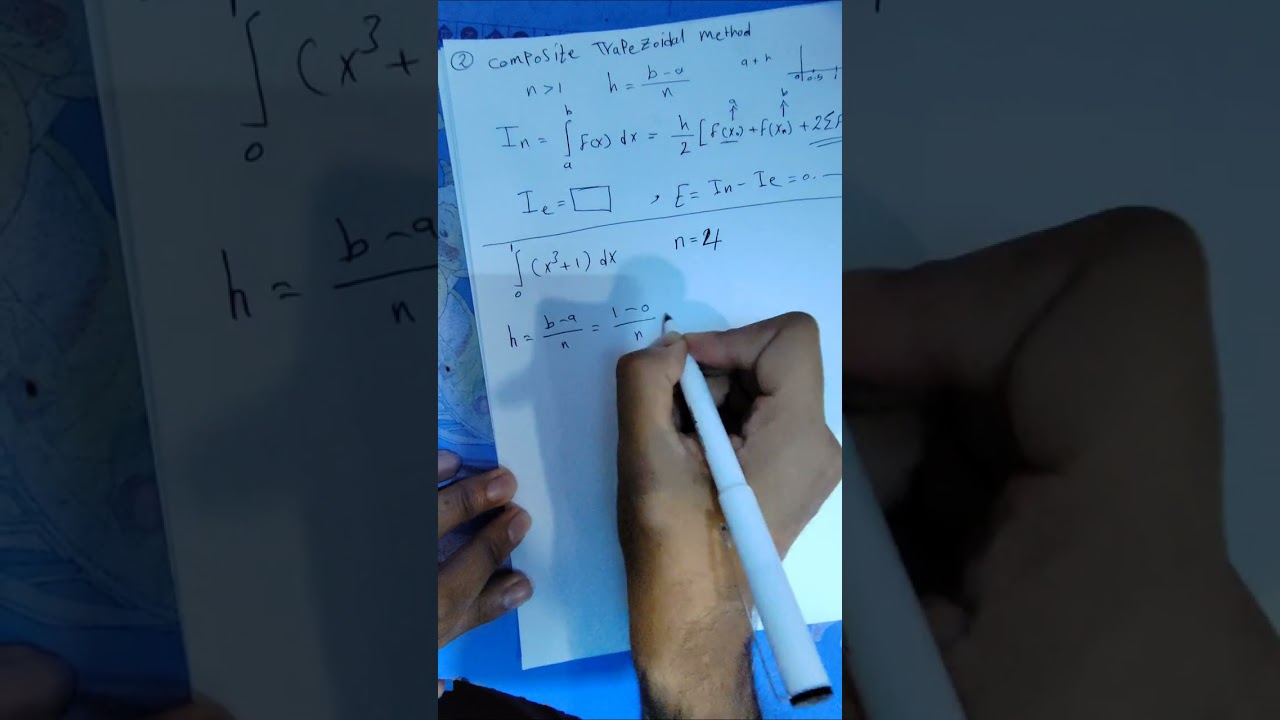 ② Composite Trapezoidal method
n>1 h = (b-a)/n a+h
0 0.5 1
a b
I_n = ∫_a^b f(x) dx = h/2 [f(x₀) + f(x_n) + 2Σf
I_e = □ , E = I_n - I_e = 0. —
∫_0^1 (x³+1) dx n=4
h = (b-a)/n = (1-0)/n